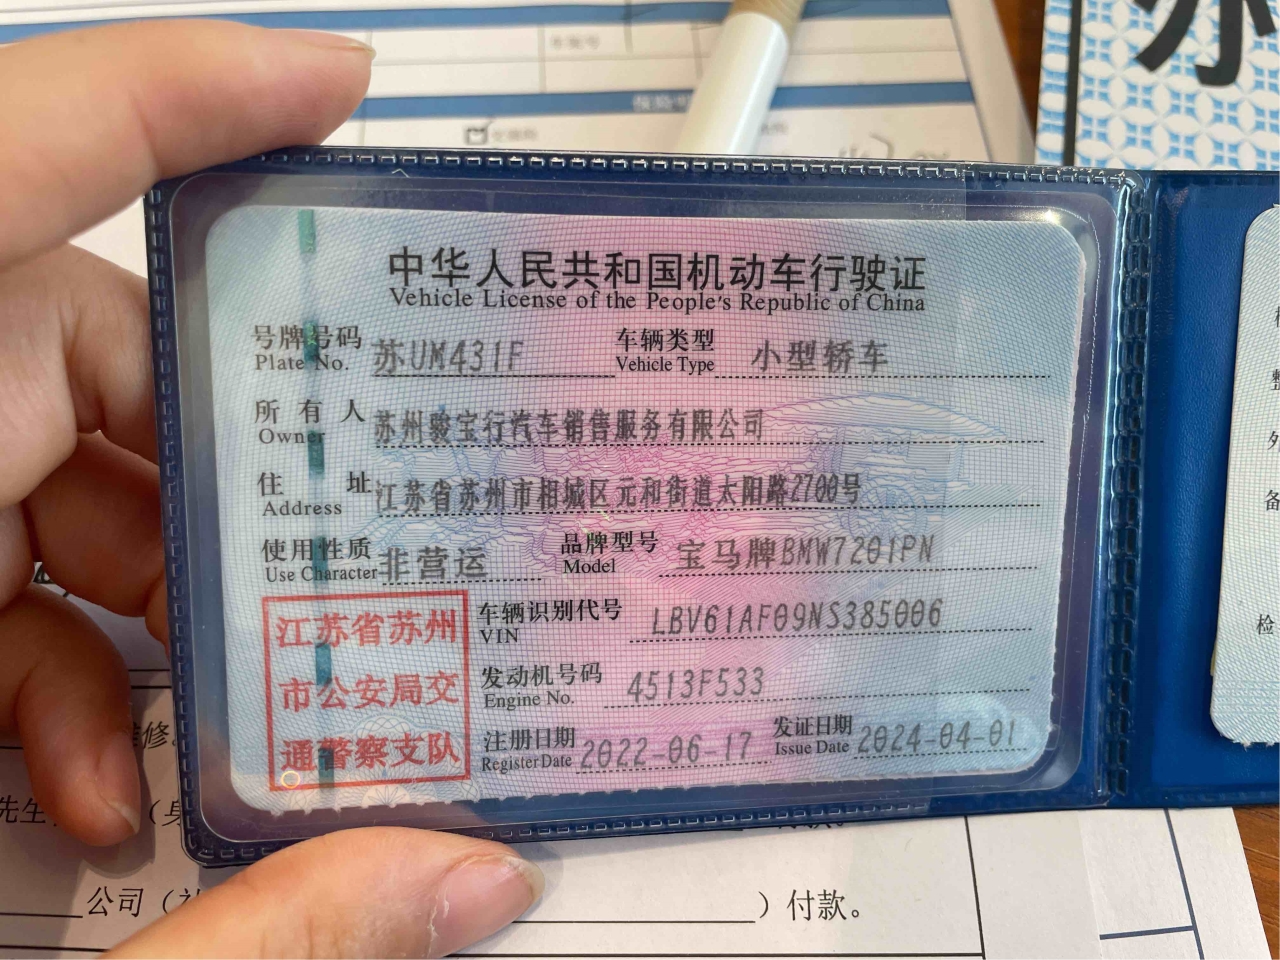 苏
中华人民共和国机动车行驶证
Vehicle License of the People's Republic of China
号牌号码 苏UM431F 车辆类型 小型轿车
Plate No. Vehicle Type
所有人 苏州骏宝行汽车销售服务有限公司
Owner
住址 江苏省苏州市相城区元和街道太阳路2700号
Address
使用性质 非营运 品牌型号 宝马牌BMW7201PN
Use Character Model
江苏省苏州
市公安局交
通警察支队
车辆识别代号 LBV61AF09NS385006
VIN
发动机号码 4513F533
Engine No.
注册日期 2022-06-17 发证日期 2024-04-01
Register Date Issue Date
整
外
备
检
维修
先生
（身
付款。
公司（
）付款。